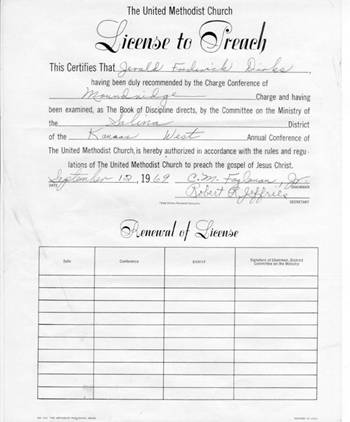 The United Methodist Church
License to Preach
This Certifies That Jerald Dirks,
having been duly recommended by the Charge Conference of
Moundridge Charge and having
been examined, as The Book of Discipline directs, by the Committee on the Ministry of
the Salina District
of the Kansas West Annual Conference of
The United Methodist Church, is hereby authorized in accordance with the rules and regu-
lations of The United Methodist Church to preach the gospel of Jesus Christ.
September 12, 1969 C.M. Jr.
DATE CHAIRMAN
Robert R. Jeffries
SECRETARY
Renewal of License
Date Conference District Signature of Chairman, District
Committee on the Ministry